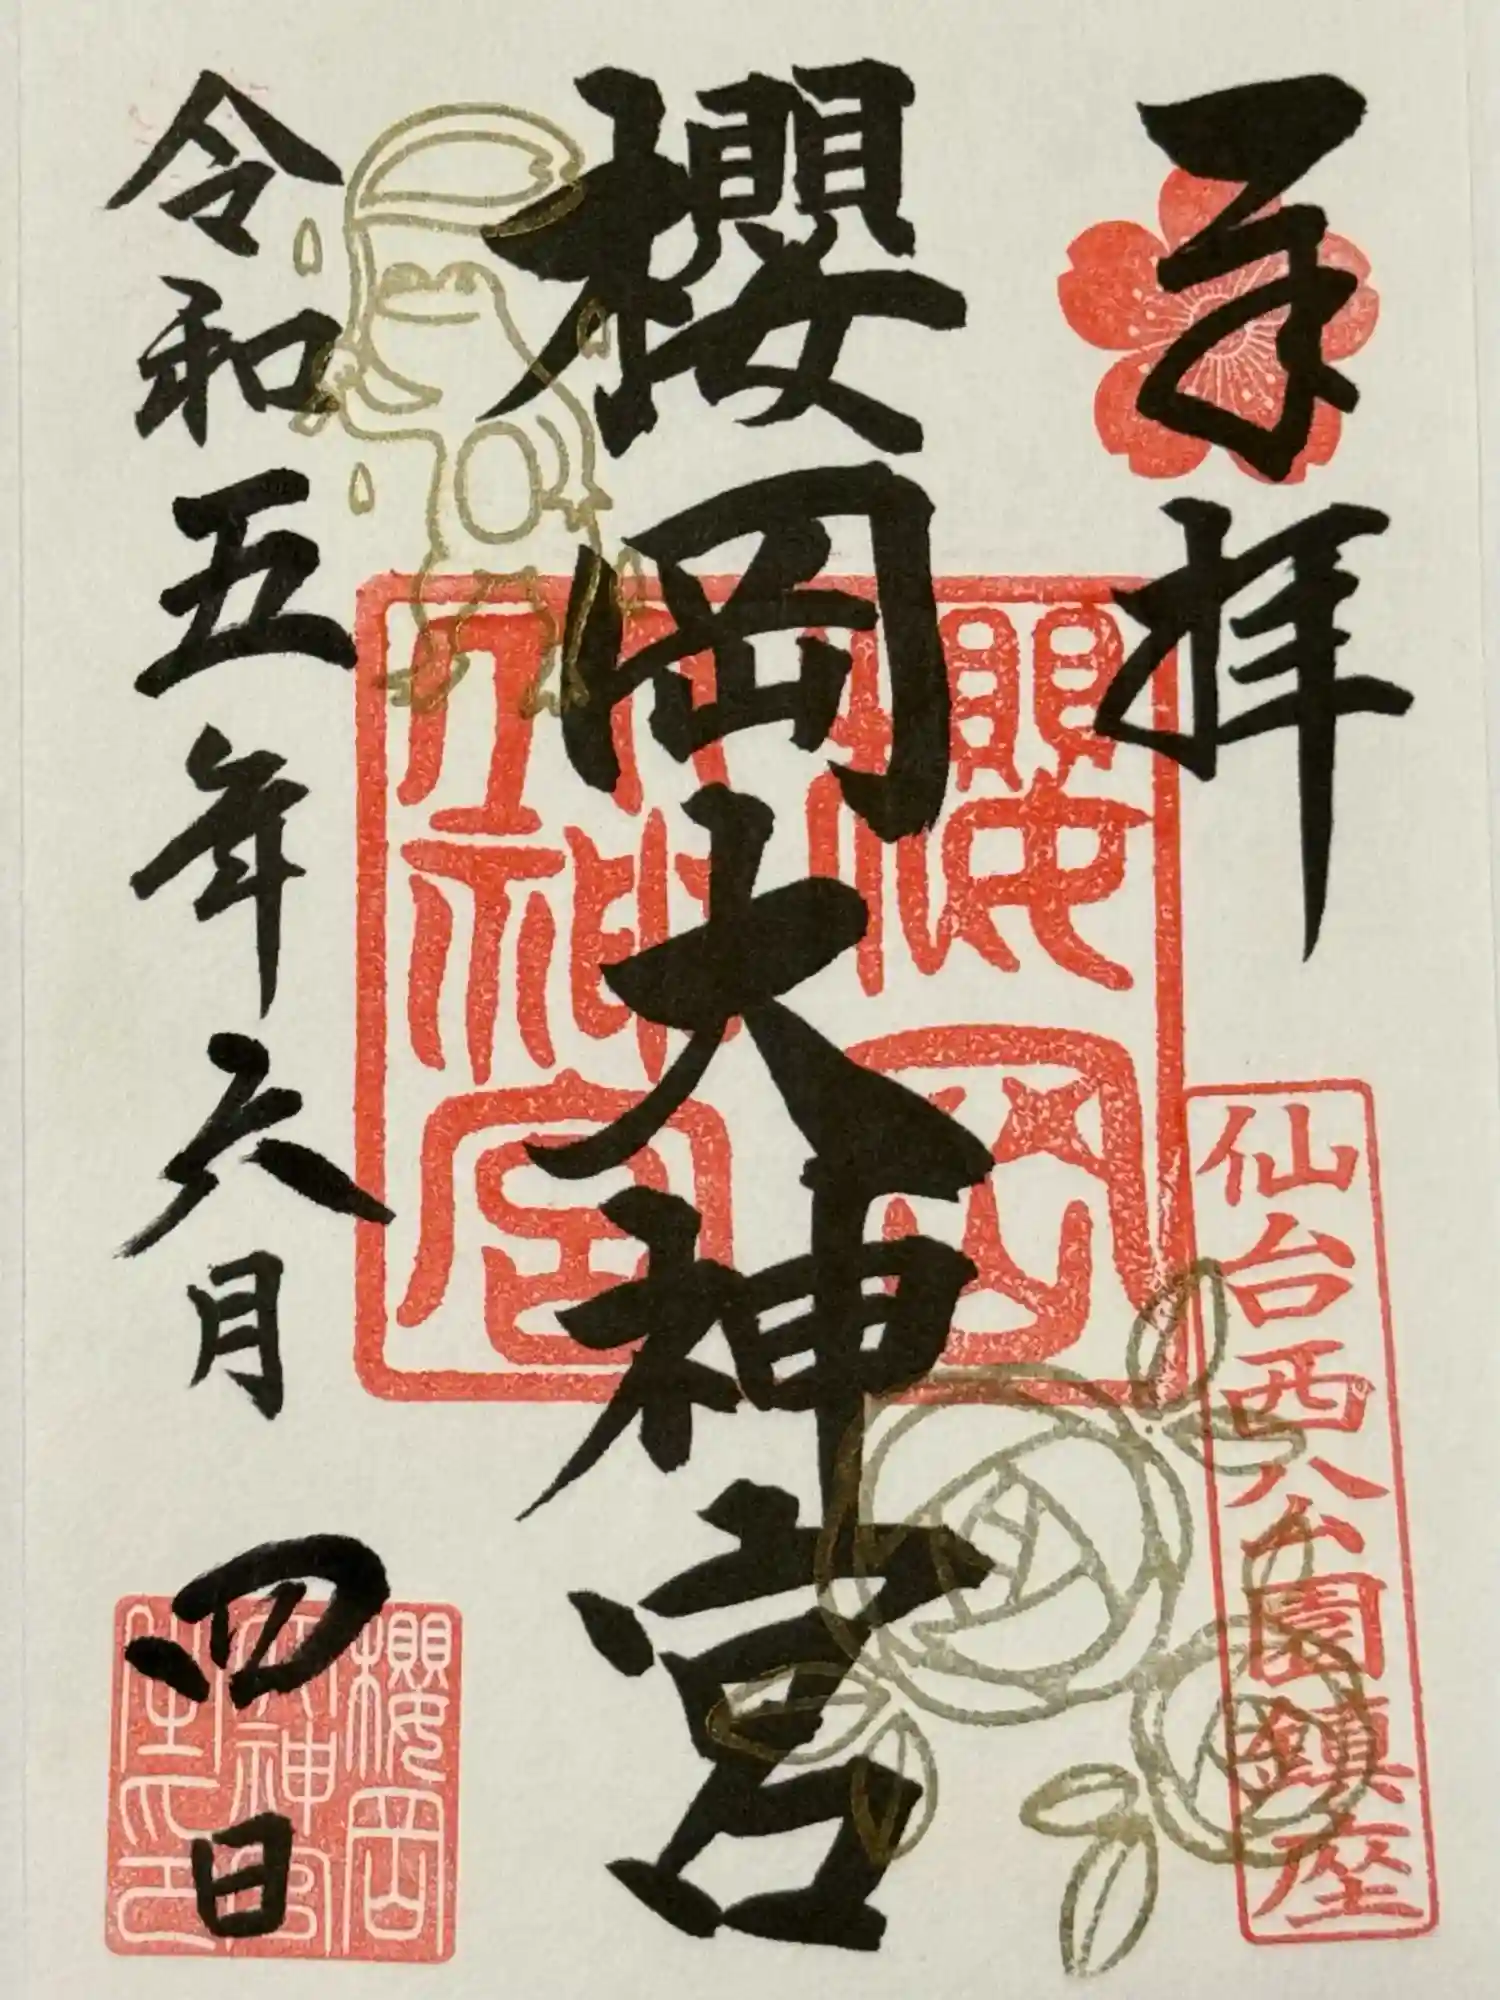 奉拝
仙台西公園鎮座
櫻岡大神宮
櫻岡
大神宮
令和五年六月四日
櫻岡
大神宮